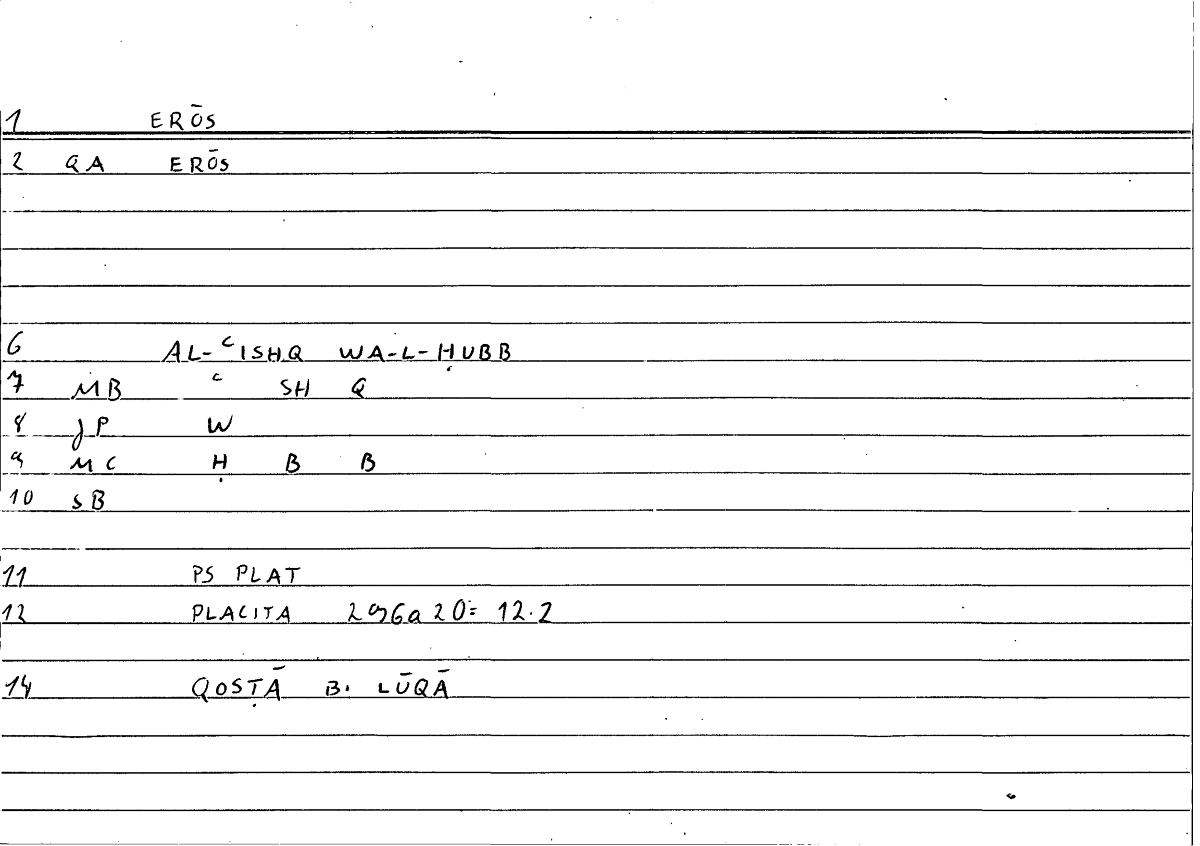 1 ERŌS
2 QA ERŌS
6 AL-ʿISHQ WA-L-ḤUBB
7 MB ʿ SH Q
8 JP W
9 MC Ḥ B B
10 SB
11 PS PLAT
12 PLACITA 296a20= 12.2
14 QOSṬĀ B. LŪQĀ